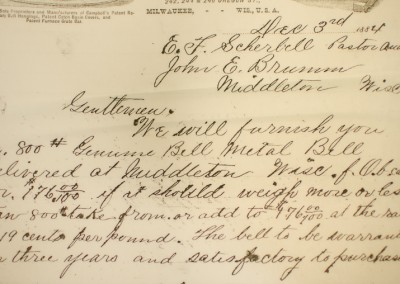 242, 244 & 246 OREGON ST.,
Sole Proprietors and Manufacturers of Campbell's Patent
Bell Hangings, Patent Crank
Patent Furnace Grate Bar
MILWAUKEE, - - WIS., U.S.A.
Dec 3rd 1884
E. F. Scherbell Pastor and
John E. Brumm
Middleton Wisc
Gentlemen.
We will furnish you
800 # Genuine Bell Metal Bell
delivered at Middleton Wisc. f.O.b
$176 00/100 if it should weigh more or les
an 800 # take from or add to $176 00/100 at the ra
19 cents per pound. The bell to be warran
n three years and satisfactory to purchas